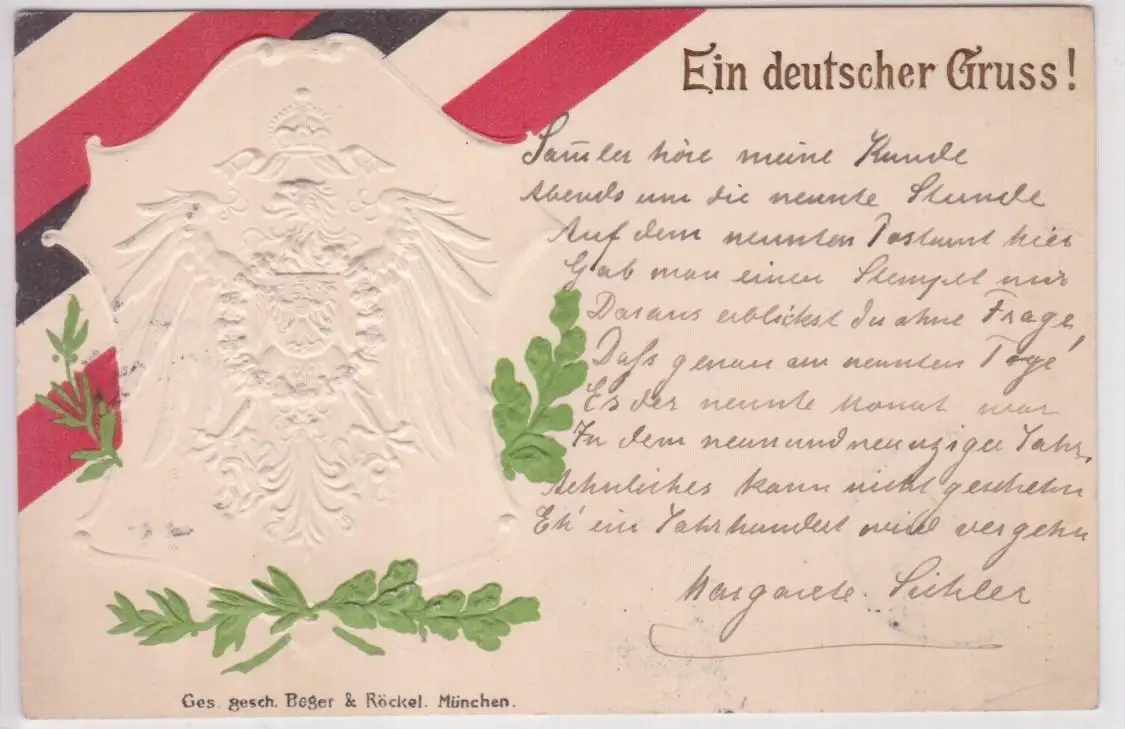 Ein deutscher Gruss!
Sam̅ler höre meine Kunde
Abends um die neunte Stunde
Auf dem neunten Postamt hier
Gab man einen Stempel mir
Daraus erblickst du ohne Frage,
Daß genau am neunten Tage
Es der neunte Monat war
In dem neunundneunziger Jahr.
Aehnliches kann nicht geschehn
Eh' ein Jahrhundert wird vergehn
Margarete
Ges. gesch. Beger & Röckel. München.